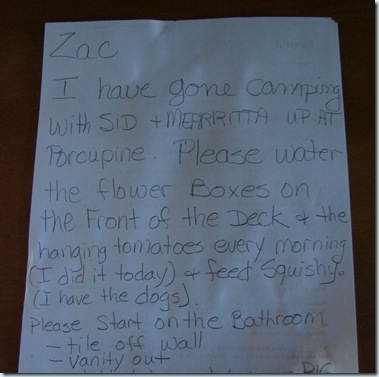 Zac
I have gone camping
with SID + MEARRITTA UP AT
Porcupine. Please water
the flower Boxes on
the Front of the Deck & the
hanging tomatoes every morning
(I did it today) & feed Squishy.
(I have the dogs).
Please Start on the Bathroom
- tile off wall
- vanity out